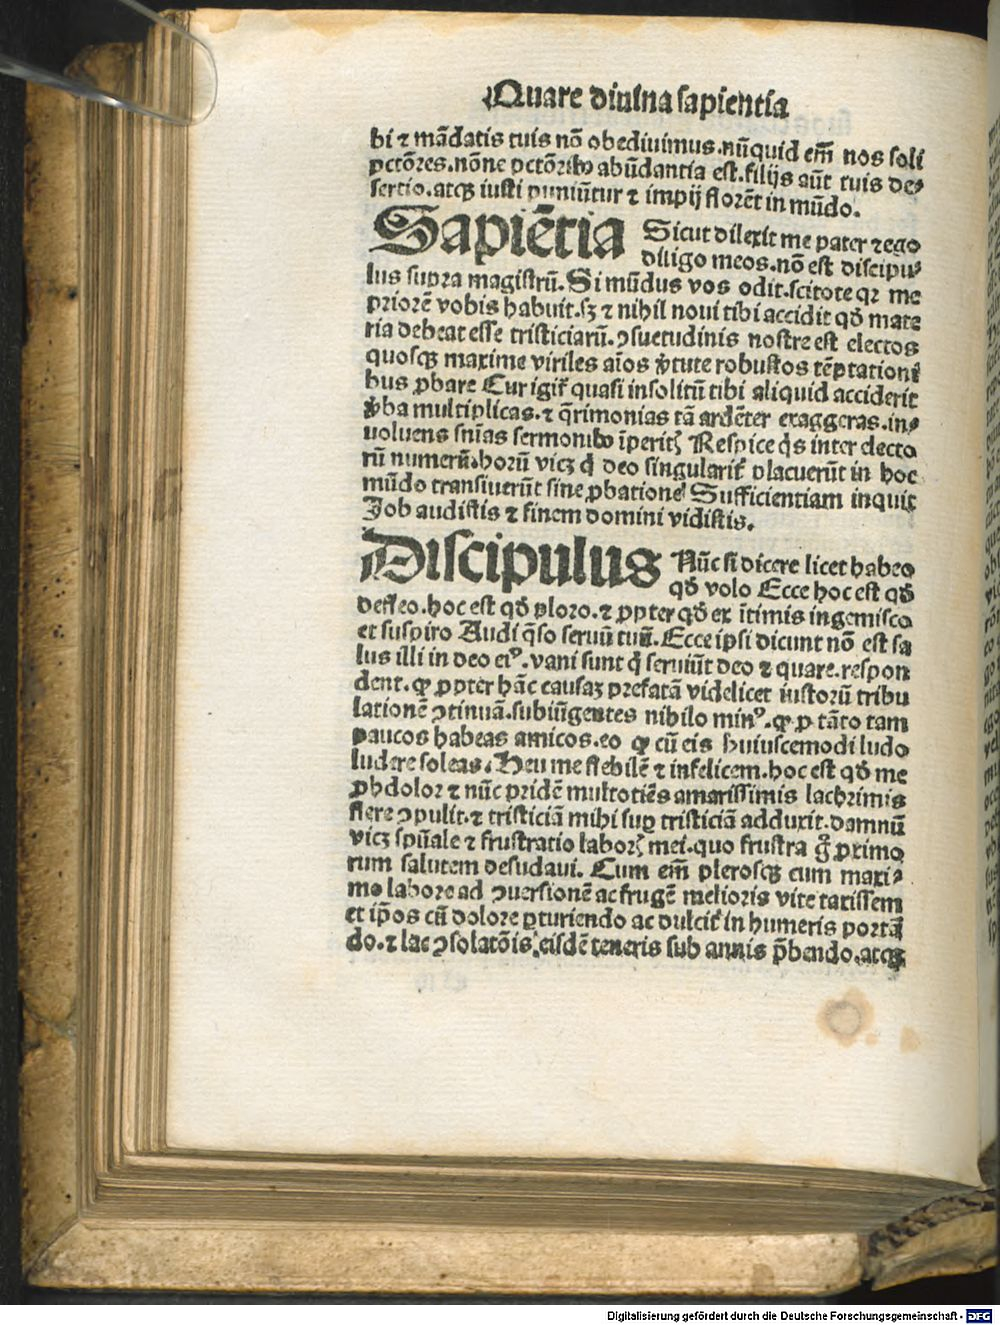 Quare diuina sapientia
bi ⁊ mādatis tuis nō obediuimus.nūquid em̄ nos soli
pctōres.nōne pctōrib abūdantia est.filijs aūt tuis de⸗
sertio.atqꝫ iusti puniūtur ⁊ impij florēt in mūdo.
Sapiētia Sicut dilexit me pater ⁊ ego
diligo meos.nō est discipu⸗
lus supra magistrū. Si mūdus vos odit.scitote qꝛ me
priorē vobis habuit.sꝫ ⁊ nihil noui tibi accidit qđ mate
ria debeat esse tristiciarū.ꝯsuetudinis nostre est electos
quosqꝫ maxime viriles aīos v̓tute robustos tēptationi
bus ꝓbare Cur igit᷑ quasi insolitū tibi aliquid acciderit
v̓ba multiplicas.⁊ q̄rimonias tā ardēter exaggeras.in⸗
uoluens snīas sermonib īperitꝭ Respice q̄s inter electo
rū numerū.horū vicꝫ q̇ deo singularit᷑ placuerūt in hoc
mūdo transiuerūt sine ꝓbatione Sufficientiam inquit
Job audistis ⁊ finem domini vidistis.
Discipulus Nūc si dicere licet habeo
qđ volo Ecce hoc est qđ
defleo.hoc est qđ ploro.⁊ ꝓpter qđ ex ītimis ingemisco
et suspiro Audi q̄so seruū tuū. Ecce ipsi dicunt nō est sa
lus illi in deo eiꝰ.vani sunt q̇ seruiūt deo ⁊ quare.respon
dent.qꝛ ꝓpter hāc causaꝫ prefatā videlicet iustorū tribu
lationē ꝯtinuā.subiūgentes nihilo minꝰ.qꝛ ꝓ tāto tam
paucos habeas amicos.eo qꝛ cū eis huiuscemodi ludo
ludere soleas. Heu me flebilē ⁊ infelicem.hoc est qđ me
ꝓhdolor ⁊ nūc pridē multotiēs amarissimis lachrimis
flere ꝯpulit.⁊ tristiciā mihi suꝑ tristiciā adduxit.damnū
vicꝫ spūale ⁊ frustratio laborꝭ mei.quo frustra g̊ ꝓximo
rum salutem desudaui. Cum em̄ plerosqꝫ cum maxi⸗
mo labore ad ꝯuersionē ac frugē melioris vite taxissem
et ip̄os cū dolore ꝑturiendo ac dulcit᷑ in humeris portā
do.⁊ lac ꝯsolatōis eisdē teneris sub annis p̄bendo.atqꝫ
Digitalisierung gefördert durch die Deutsche Forschungsgemeinschaft - DFG